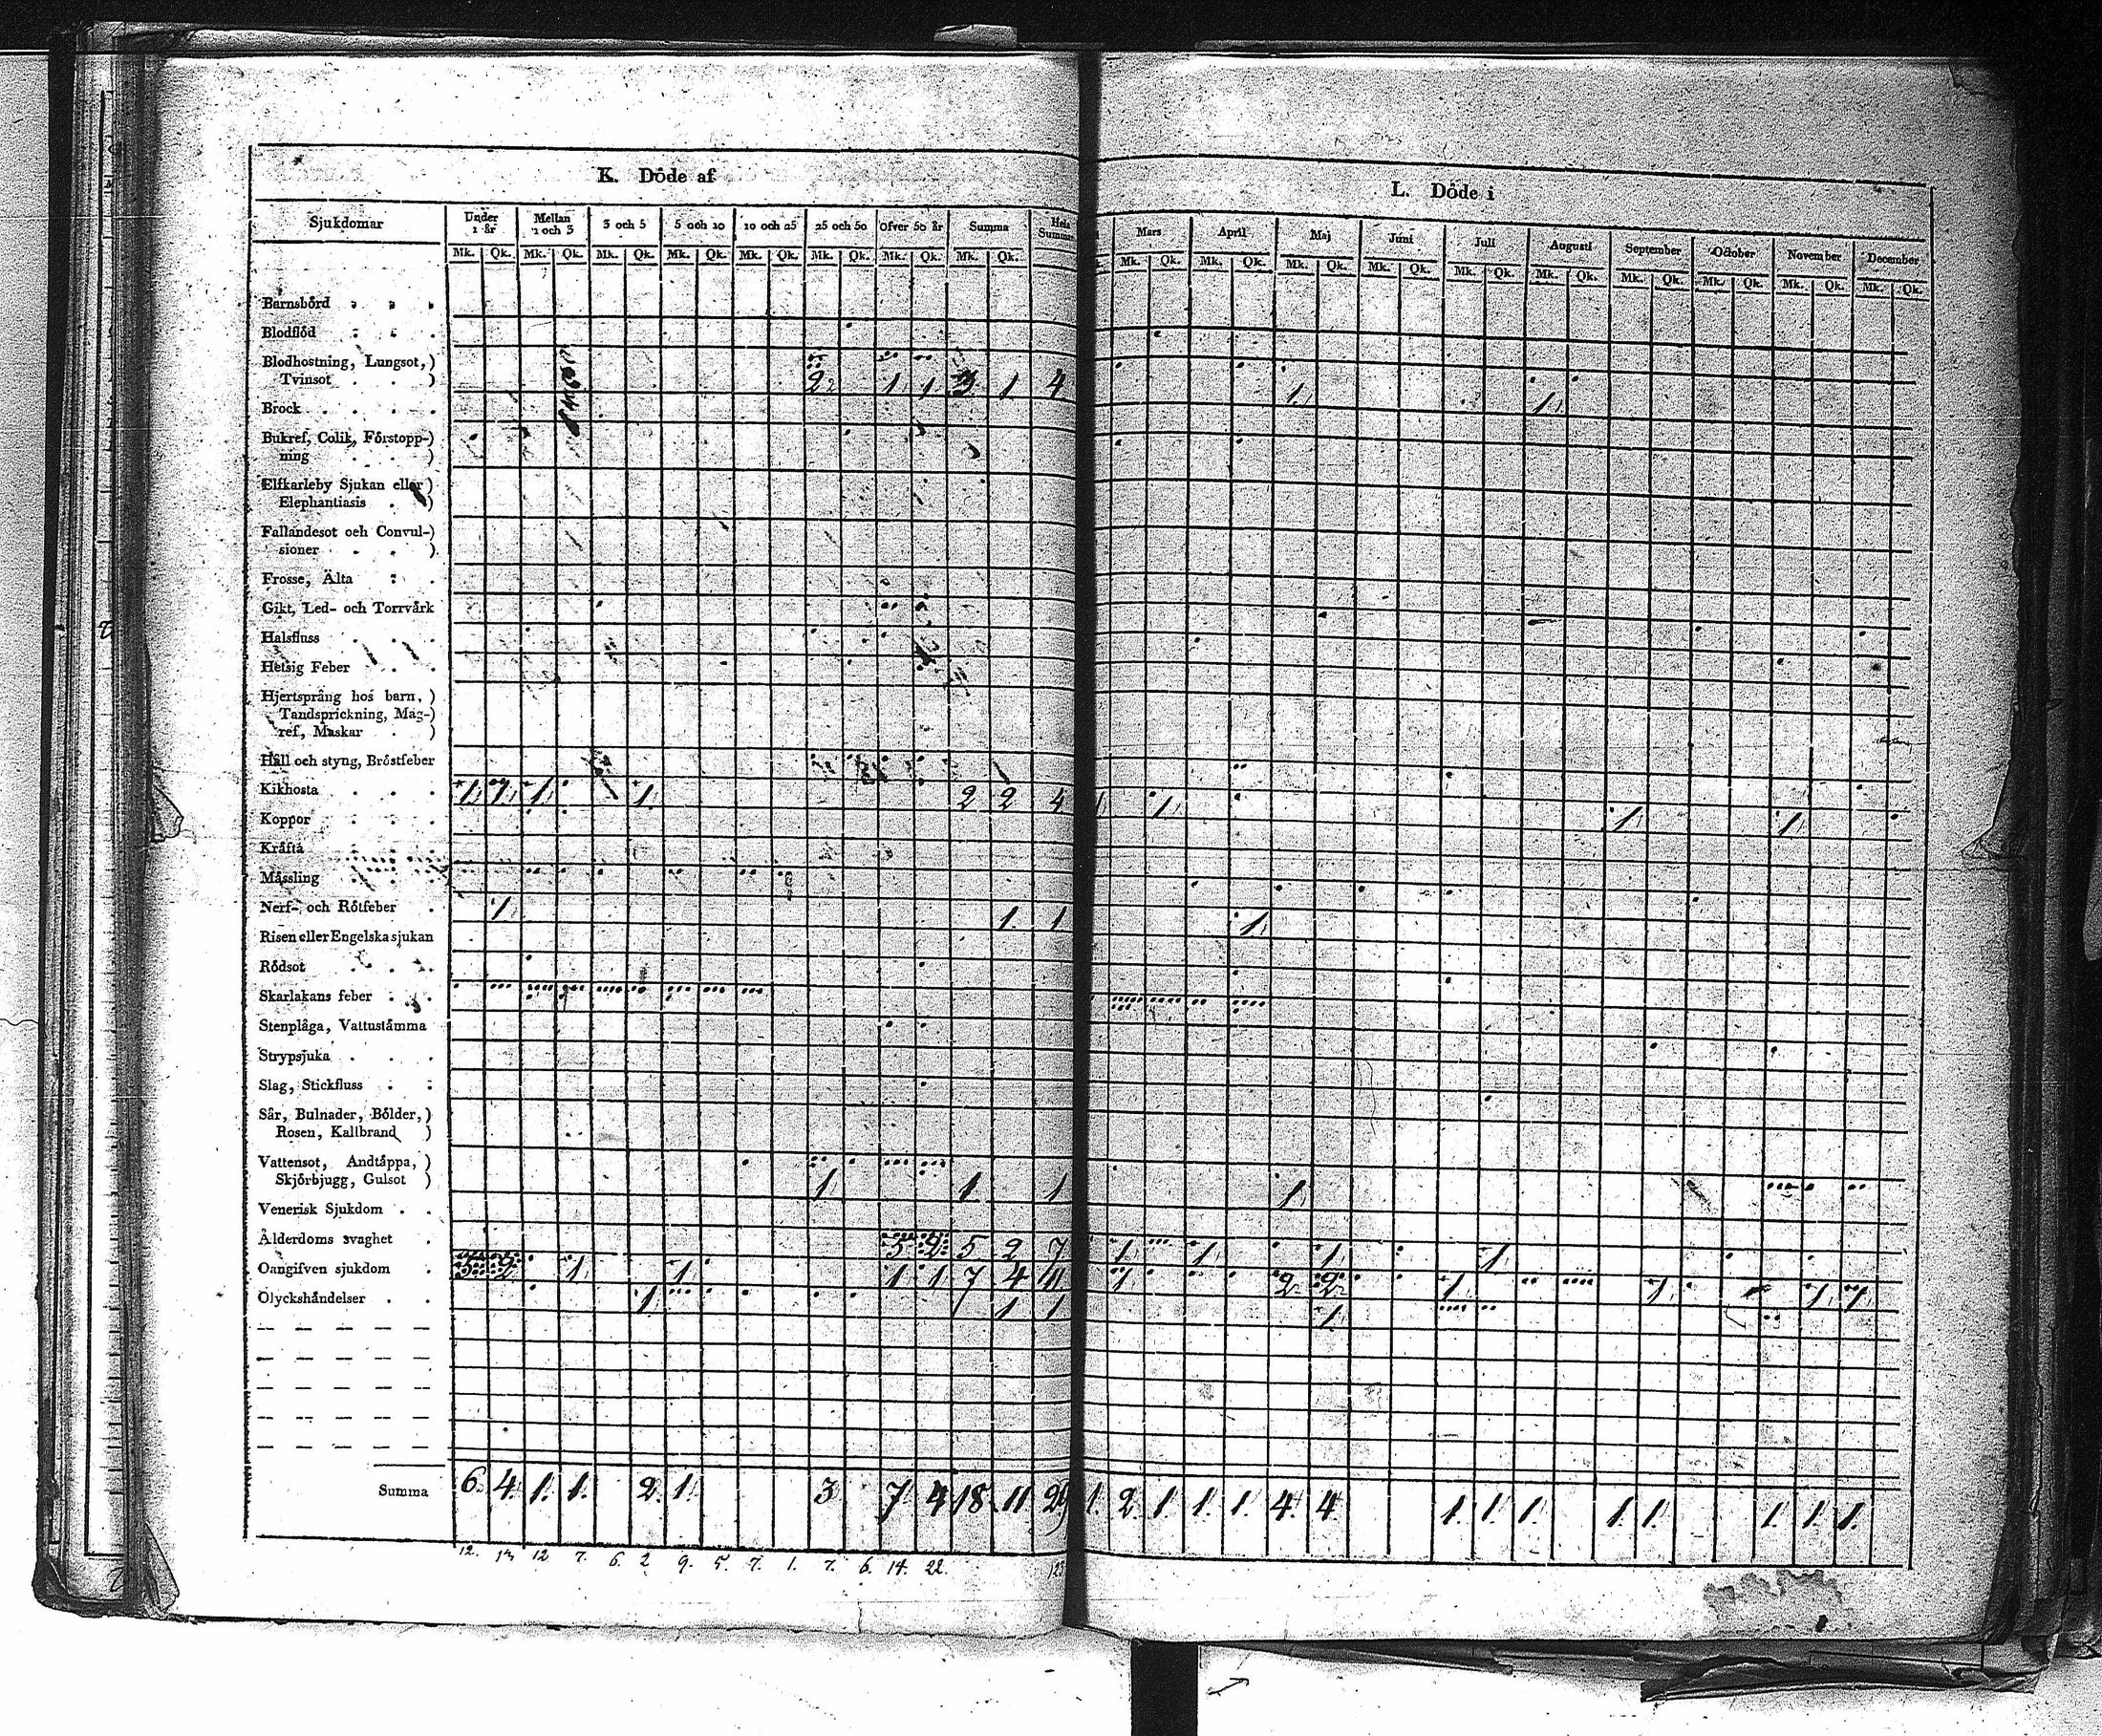 K. Döde af
Sjukdomar Under 1 år Mellan 1 och 3 3 och 5 5 och 10 10 och 25 25 och 50 Öfver 50 år Summa Hela Summan
Mk. Qk. Mk. Qk. Mk. Qk. Mk. Qk. Mk. Qk. Mk. Qk. Mk. Qk. Mk. Qk.
Barnsbörd
Blodflöd
Blodhostning, Lungsot,)
Tvinsot . . ) 2 1 1 3 1 4
Brock
Bukref, Colik, Förstopp-)
ning )
Elfkarleby Sjukan eller)
Elephantiasis . )
Fallandesot och Convul-)
sioner . . )
Frosse, Älta
Gikt, Led- och Torrvärk
Halsfluss
Hetsig Feber
Hjertsprång hos barn, )
Tandsprickning, Mag-)
ref, Maskar . )
Håll och styng, Bröstfeber
Kikhosta 1 1 1 1 2 2 4
Koppor
Kräfta
Mässling
Nerf- och Rötfeber 1 1 1
Risen eller Engelska sjukan
Rödsot
Skarlakans feber
Stenplåga, Vattustämma
Strypsjuka
Slag, Stickfluss
Sår, Bulnader, Bölder,)
Rosen, Kallbrand )
Vattensot, Andtäppa, )
Skjörbjugg, Gulsot ) 1 1 1
Venerisk Sjukdom
Ålderdoms svaghet 5 2 5 2 7
Oangifven sjukdom 5 2 1 1 1 1 7 4 11
Olyckshändelser 1 1 1
Summa 6. 4. 1. 1. 2. 1. 3. 7. 4 18. 11 29
12. 13 12 7. 6. 2 9. 5. 7. 1. 7. 6. 14. 22. 123
L. Döde i
Mars April Maj Juni Juli Augusti September October November December
Mk. Qk. Mk. Qk. Mk. Qk. Mk. Qk. Mk. Qk. Mk. Qk. Mk. Qk. Mk. Qk. Mk. Qk. Mk. Qk.
1 1
1 1 1 1
1
1
1 1 1 1
1 2 2 1 1 1 1
1
1. 2. 1. 1. 1. 4. 4. 1. 1. 1. 1. 1. 1. 1. 1.